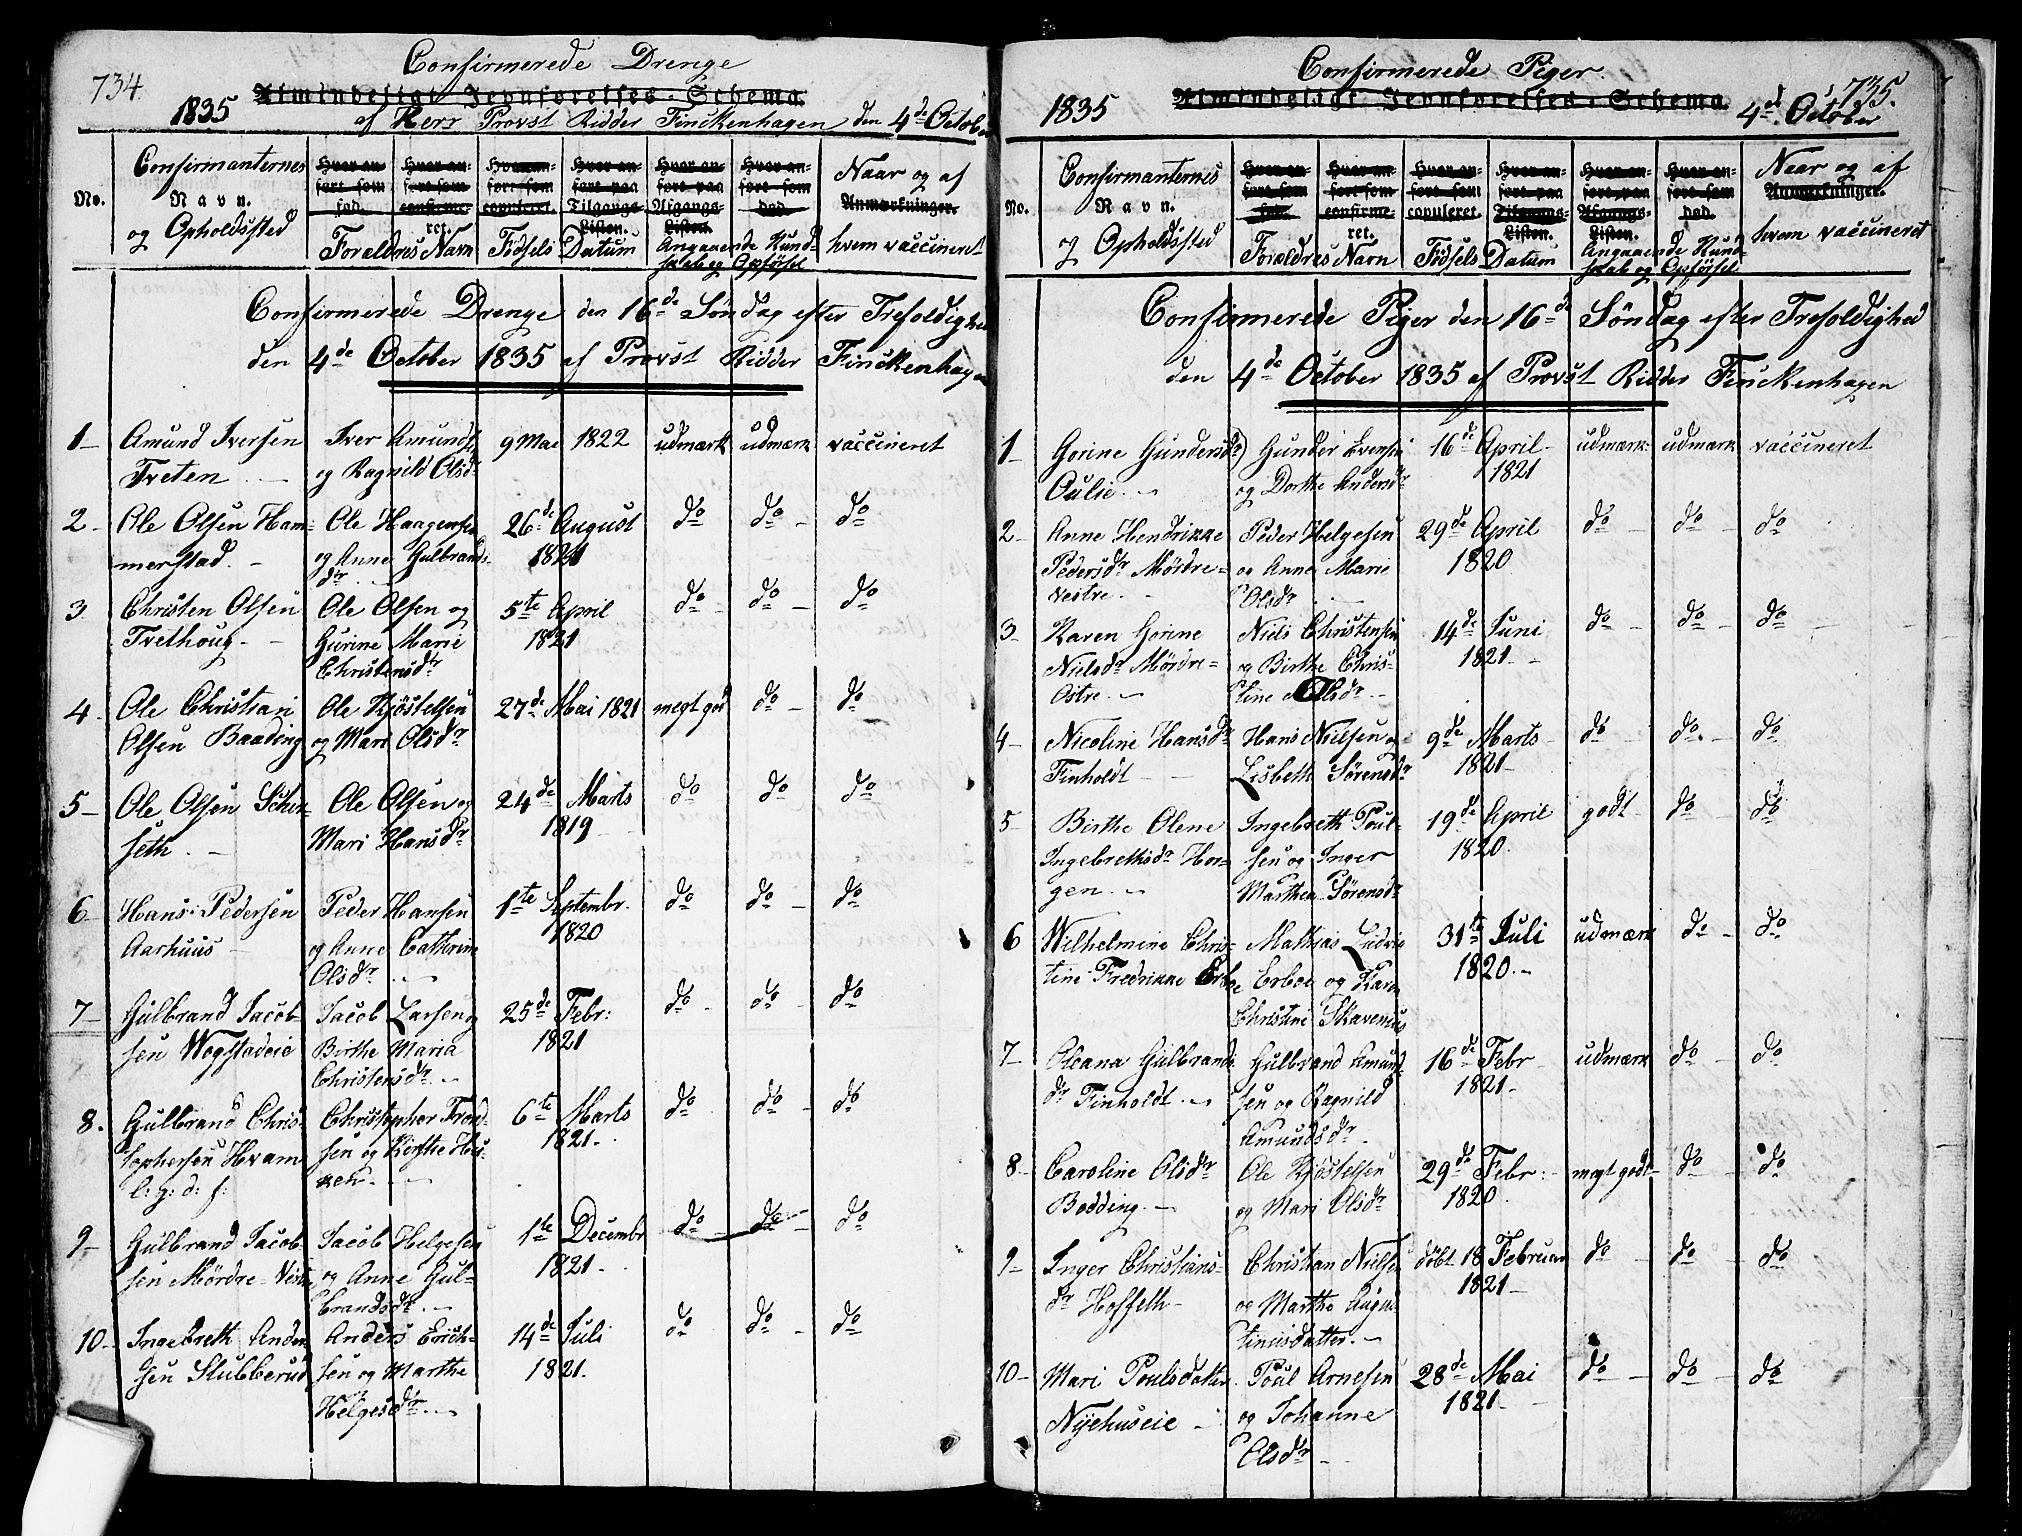 734
Confirmerede Drenge
Almindeligt Jevnførelses-Schema.
1835 af Herr Provst Ridder Finckenhagen den 4de October
No.
Confirmanternes
Navn.
og Opholdssted
Hvor anført som fød.
Hvor anført som confirmeret.
Hvor anført som copuleret.
Hvor anført paa Tilgangs-Listen.
Hvor anført paa Afgangs-Listen.
Hvor anført som død.
Forældres Navn
Fødsels Datum
Angaaende Kundskab og Opførsel
Naar og af
Anmærkninger.
hvem vaccineret
Confirmerede Drenge den 16de Søndag efter Trefoldighed
den 4de October 1835 af Provst Ridder Finckenhagen
1 Amund Iversen Iver Amunds. 9 Mai 1822 udmærk udmærk vaccineret
Tveten og Ragnild Olsdr
2 Ole Olsen Ham- Ole Haagensen 26de August do do do
merstad. og Anne Gulbrands- 1821
dr
3 Christen Olsen Ole Olsen og 5te April do do do
Tvethoug Gurine Marie 1821
Christensdr
4 Ole Christian Ole Kjøstelsen 27de Mai 1821 megt god do do
Olsen Baading og Mari Olsdr
5 Ole Olsen Ole Olsen og 24de Marts do do do
seth Mari Hansdr 1819
6 Hans Pedersen Peder Hansen 1te Septembr. do do do
Aarhuus og Anne Cathrine 1820
Olsdr
7 Gulbrand Jacob- Jacob Larsen og 25de Febr: do do do
sen Wogstadeie Birthe Maria 1821
Christensdr
8. Gulbrand Chris- Christopher Trond- 6te Marts do do do
tophersen Hvam sen og Kirsthe 1821.
l: g: d: f: ken
9 Gulbrand Jacob- Jacob Helgesen 1te Decembr do do do
sen Mørdre-Vestre og Anne Gul- 1821
brandsdr
10 Ingebreth Ander- Anders Erich- 14de Juli do do do
sen Slubberud sen og Marthe 1821.
Helgesdr
735.
Confirmerede Piger.
Almindeligt Jevnførelses-Schema
1835 4de October
No.
Confirmanternes
Navn.
og Opholdssted
Hvor anført som fød.
Hvor anført som confirmeret.
Hvor anført som copuleret.
Hvor anført paa Tilgangs-Listen.
Hvor anført paa Afgangs-Listen.
Hvor anført som død.
Forældres Navn
Fødsels Datum
Angaaende Kundskab og Opførsel
Naar og af
Anmærkninger.
hvem vaccineret
Confirmerede Piger den 16de Søndag efter Trefoldighed
den 4de October 1835 af Provst Ridder Finckenhagen
1 Gorine Gundersdr Gunder Evensen 16de April udmærk udmærk vaccineret
Oulie og Dorthe Andersdr 1821
2 Anne Hendrikke Peder Helgesen 29de April do do do
Pedersdr Mørdre- og Anne Marie 1820
vestre Olsdr
3 Karen Gorine Niels Christensen 14de Juni do do do
Nielsdr Mørdre- og Birthe Chris- 1821
Ostre tine Olsdr
4 Nicoline Hansdr Hans Nielsen og 9de Marts do do do
Finholdt Lisbeth Sørensdr 1821
5 Birthe Olene Ingebreth Poul- 19de April godt do do
Ingebrethsdr Hor- sen og Inger 1820.
gen Marthea Sørensdr
6 Wilhelmine Chris- Mathias Ludvig 31te Juli udmærk do do
tine Fredrikke Erboe Erboe og Karen 1820
Christine Skavenius
7 Oleana Gulbrands Gulbrand Amund- 16de Febr udmærk do do
dr Finholdt sen og Ragnild 1821
Amundsdr
8 Caroline Olsdr Ole Kjøstelsen 29de Febr: megt godt do do
Bodding og Mari Olsdr 1820
9 Inger Christians- Christian Nielsen døbt 18 Februar do do do
dr Hoffeth og Marthe Augus 1821
tinusdatter
10 Mari Poulsdatter Poul Arnesen 28de Mai do do do
Nyehuseie og Johanne 1821
Olsdr